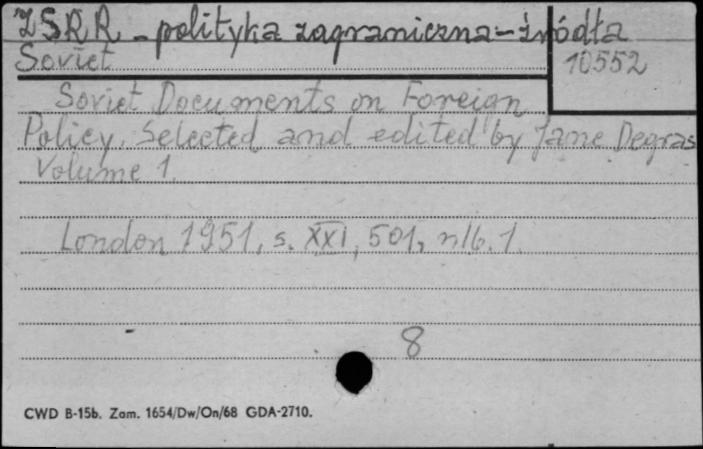 ZSRR - polityka zagraniczna - źródła
Soviet
10552
Soviet Documents on Foreign
Policy. Selected and edited by Jane Degras
Volume 1.
London 1951, s. XXI, 501, nlb. 1.
8
CWD B-15b. Zam. 1654/Dw/On/68 GDA-2710.